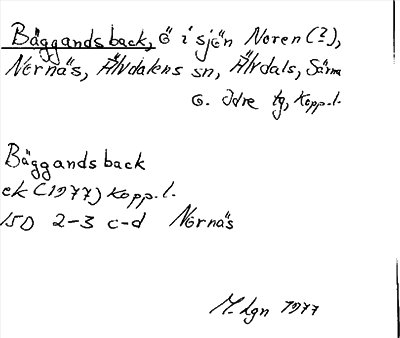 Bäggandsback, ö i sjön Noren (?),
Nornäs, Älvdalens sn, Älvdals, Särna
o. Idre tg, Kopp. l.
Bäggandsback
ek (1977) Kopp. l.
15D 2-3 c-d Nornäs
M. Lgn 1977